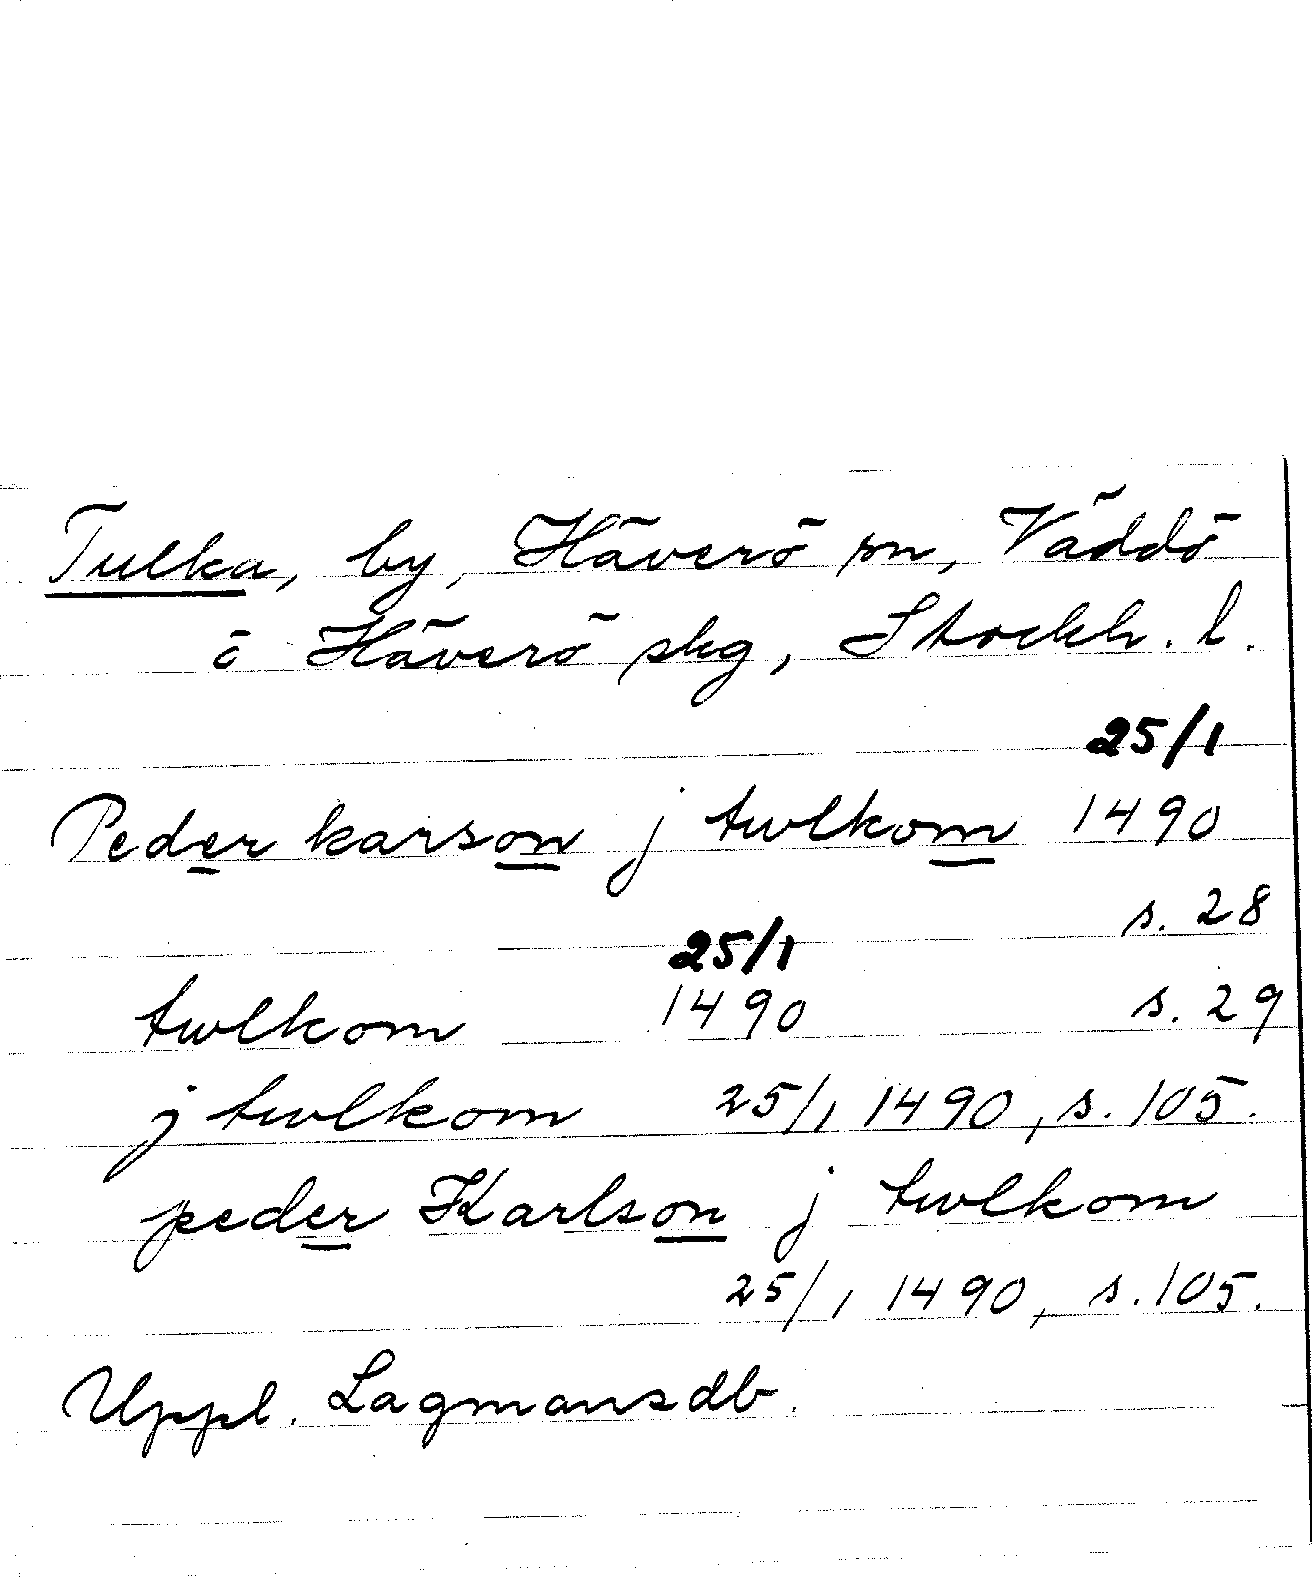 Tulka, by, Häverö sn, Väddö
o Häverö skg, Stockh. l.
25/1
Peder karson j twlkom 1490
s. 28
25/1
twlkom 1490 s. 29
j twlkom 25/1 1490, s. 105.
peder Karlson j twlkom
25/1 1490, s. 105.
Uppl. Lagmansdb.